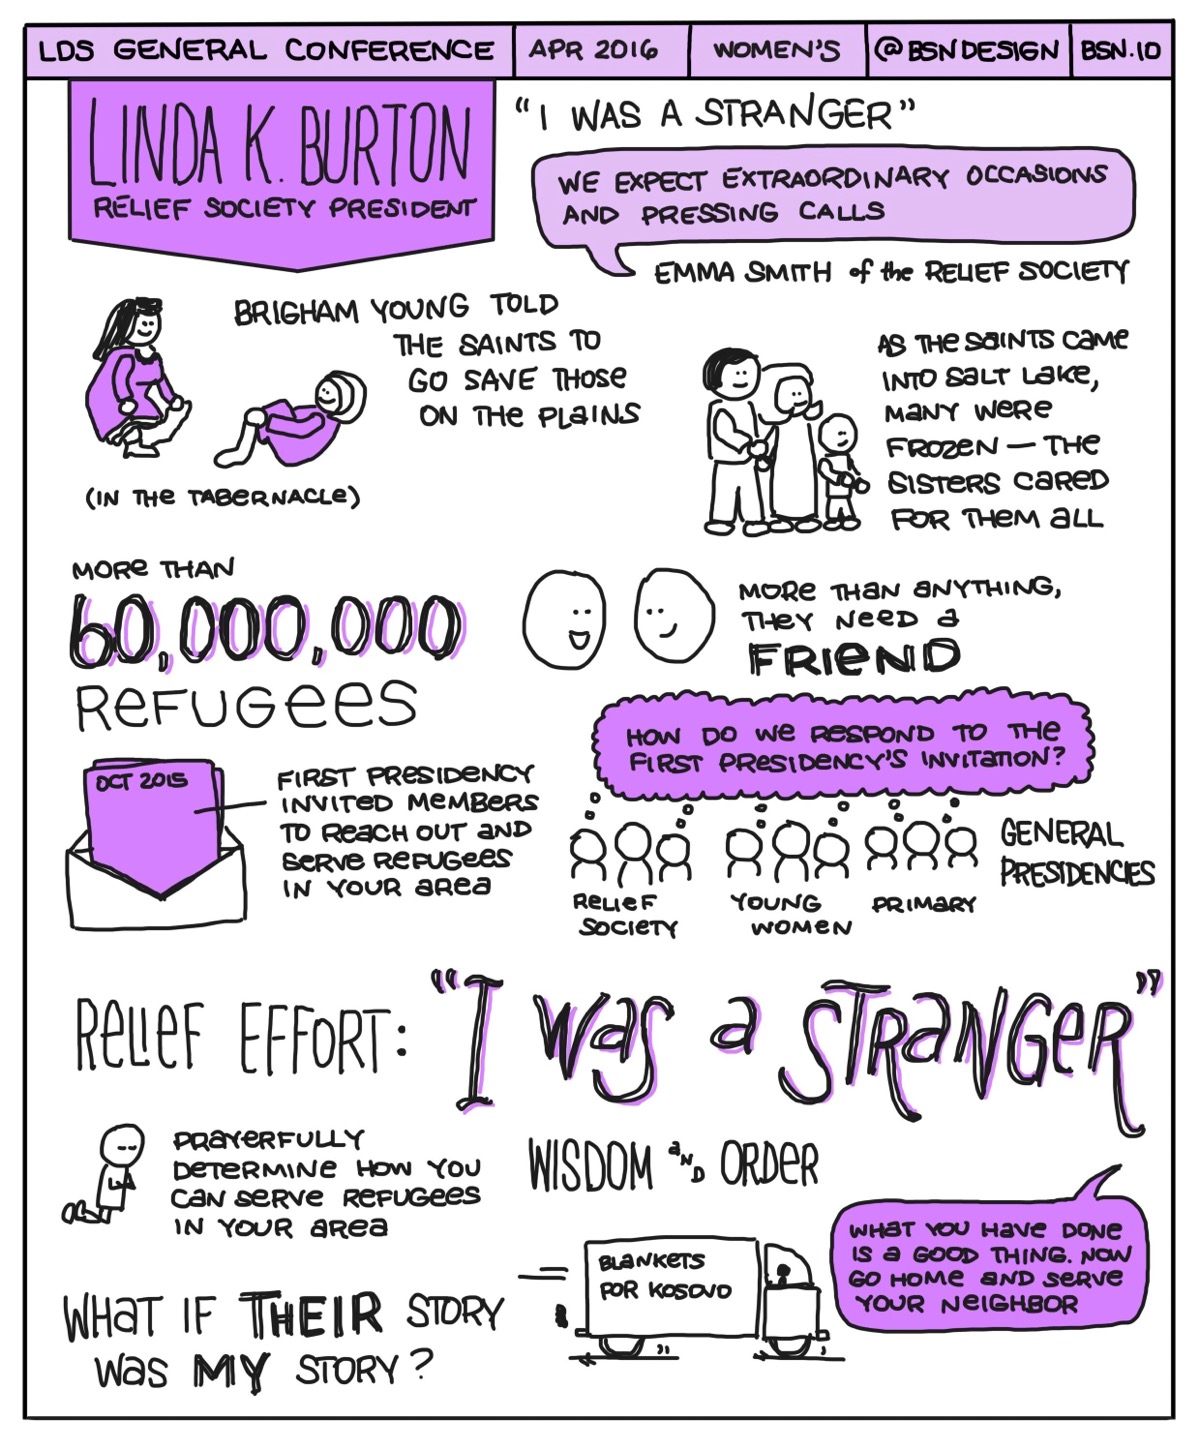 LDS GENERAL CONFERENCE
APR 2016
WOMEN'S
@BSNDESIGN
BSN.IO
LINDA K. BURTON
RELIEF SOCIETY PRESIDENT
"I WAS A STRANGER"
WE EXPECT EXTRAORDINARY OCCASIONS
AND PRESSING CALLS
EMMA SMITH of the RELIEF SOCIETY
BRIGHAM YOUNG TOLD
THE SAINTS TO
GO SAVE THOSE
ON THE PLAINS
(IN THE TABERNACLE)
AS THE SAINTS CAME
INTO SALT LAKE,
MANY WERE
FROZEN — THE
SISTERS CARED
FOR THEM ALL
MORE THAN
60,000,000
REFUGEES
MORE THAN ANYTHING,
THEY NEED A
FRIEND
OCT 2015
FIRST PRESIDENCY
INVITED MEMBERS
TO REACH OUT AND
SERVE REFUGEES
IN YOUR AREA
HOW DO WE RESPOND TO THE
FIRST PRESIDENCY'S INVITATION?
RELIEF
SOCIETY
YOUNG
WOMEN
PRIMARY
GENERAL
PRESIDENCIES
RELIEF EFFORT: "I WAS A STRANGER"
PRAYERFULLY
DETERMINE HOW YOU
CAN SERVE REFUGEES
IN YOUR AREA
WISDOM AND ORDER
BLANKETS
FOR KOSOVO
WHAT YOU HAVE DONE
IS A GOOD THING. NOW
GO HOME AND SERVE
YOUR NEIGHBOR
WHAT IF THEIR STORY
WAS MY STORY?